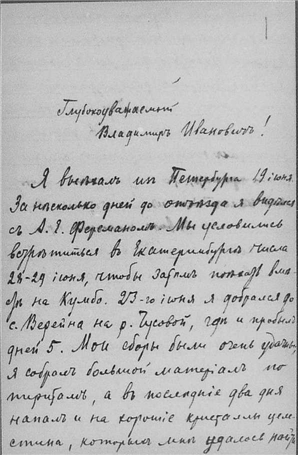 Глубокоуважаемый
Владимиръ Ивановичъ!
Я выѣхалъ изъ Петербурга 19 іюня.
За нѣсколько дней до отъѣзда я видѣлся
съ А. Е. Ферсманомъ. Мы условились
встрѣтиться въ Екатеринбургѣ числа
28-29 іюня, чтобы затѣмъ поѣхать вмѣ-
стѣ на Кумбо. 23-го іюня я добрался до
с. Верейна на р. Чусовой, гдѣ и пробылъ
дней 5. Мои сборы были очень удачны,
я собралъ большой матеріалъ по
, а въ послѣдніе два дня
напалъ и на хорошіе кристаллы целе-
стина, которыхъ мнѣ удалось найти